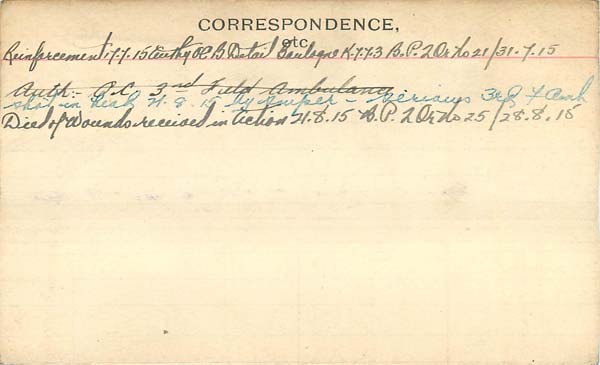 CORRESPONDENCE,
etc.
Reinforcement 17.7.15 Authy O.C. B. Detail Boulogne K.7.7.3 B.P. 2 Or. No 21/31.7.15
Auth:- O.C. 3rd Field Ambulance
shot in head 4.8.15 by sniper - Serious 3rd F Amb
Died of Wounds received in Action 4.8.15 B.P. 2 Or. No 25/28.8.15